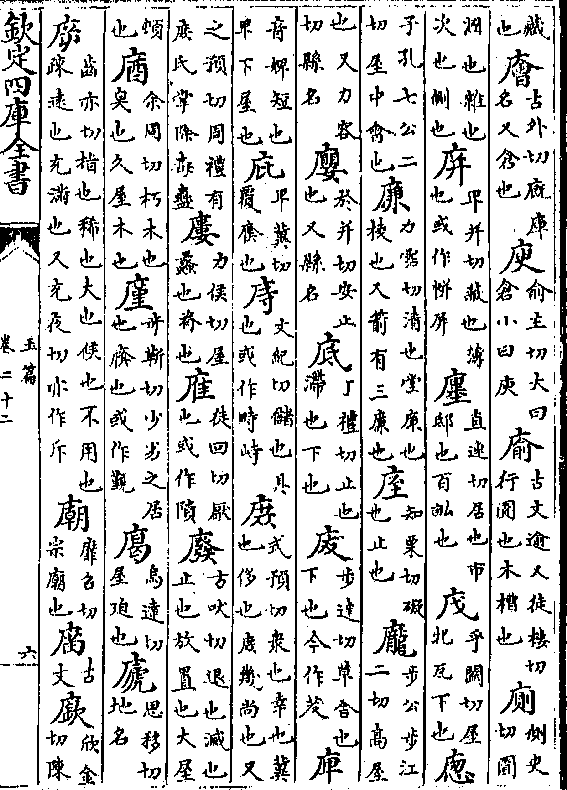 藏也廥古外切廐庫名又倉也庾俞主切大曰倉小曰庾㢏古文逾又徒樓切行圊也木槽也廁側史切圂
溷也雜也次也側也庰卑并切藏也簿也或作偋屏廛直連切居也市邸也百畝也乎關切屋牝瓦下也
子孔七公二切屋中會也廉力霑切清也堂廉也棱也又箭有三廉也庢知栗切礙也止也龐步公步江二切高屋
也又力容切縣名廮於井切安止也又縣名底丁禮切止也滯也下也废步達切草舍也下也今作茇庳
音婢短也卑下屋也庇卑冀切覆廕也庤丈紀切儲也具也或作時峙庶式預切衆也幸也冀也侈也庶幾尚也又
之預切周禮有庶氏掌除毒蠱廔力侯切屋蠡也脊也㢈徒回切厭也或作隤廢方吠切退也減也止也放置也大屋
頓也庮余周切朽木也臭也久屋木也廑奇斯切少劣之居也廕也或作覲廅烏達切屋迫也㢋思移切地名
㡿齒亦切指也稀也大也候也不用也疎遠也充滿也又充夜切亦作斥廟靡召切宗廟也庿古文廞欣金切陳
欽定四庫全書
玉篇
卷二十二
六